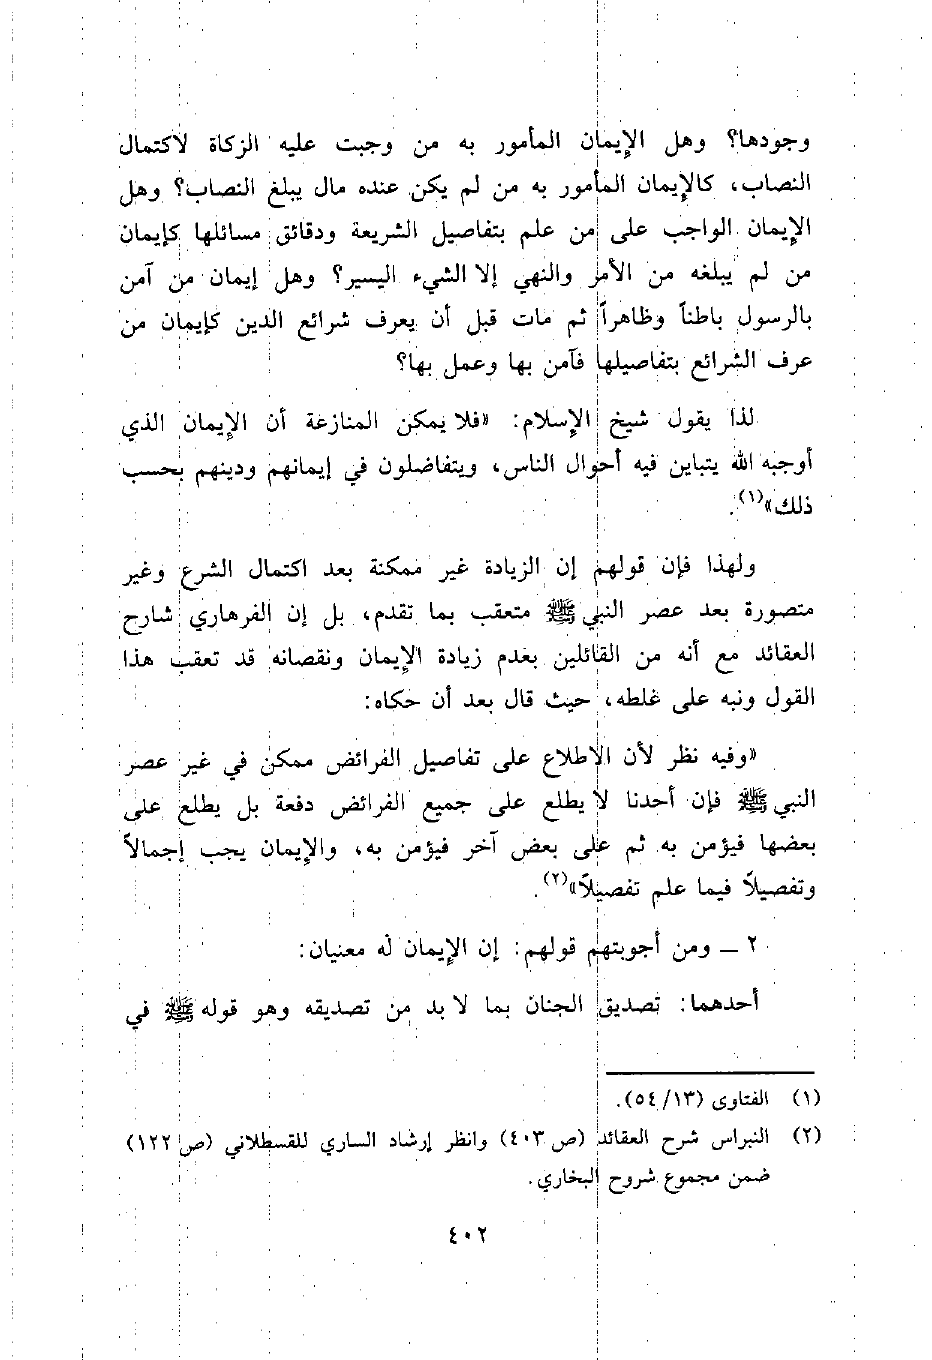 وجودها؟ وهل الإيمان المأمور به من وجبت عليه الزكاة لاكتمال
النصاب، كالإيمان المأمور به من لم يكن عنده مال يبلغ النصاب؟ وهل
الإيمان الواجب على من علم بتفاصيل الشريعة ودقائق مسائلها كإيمان
من لم يبلغه من الأمر والنهي إلا الشيء اليسير؟ وهل إيمان من آمن
بالرسول باطناً وظاهراً ثم مات قبل أن يعرف شرائع الدين كإيمان من
عرف الشرائع بتفاصيلها فآمن بها وعمل بها؟
لذا يقول شيخ الإسلام: «فلا يمكن المنازعة أن الإيمان الذي
أوجبه الله يتباين فيه أحوال الناس، ويتفاضلون في إيمانهم ودينهم بحسب
ذلك»(١).
ولهذا فإن قولهم إن الزيادة غير ممكنة بعد اكتمال الشرع وغير
متصورة بعد عصر النبي ﷺ متعقب بما تقدم، بل إن الفرهاري شارح
العقائد مع أنه من القائلين بعدم زيادة الإيمان ونقصانه قد تعقب هذا
القول ونبه على غلطه، حيث قال بعد أن حكاه:
«وفيه نظر لأن الاطلاع على تفاصيل الفرائض ممكن في غير عصر
النبي ﷺ فإن أحدنا لا يطلع على جميع الفرائض دفعة بل يطلع على
بعضها فيؤمن به ثم على بعض آخر فيؤمن به، والإيمان يجب إجمالاً
وتفصيلاً فيما علم تفصيلاً»(٢).
٢ ــ ومن أجوبتهم قولهم: إن الإيمان له معنيان:
أحدهما: تصديق الجنان بما لا بد من تصديقه وهو قوله ﷺ في
(١) الفتاوى (١٣/ ٥٤).
(٢) النبراس شرح العقائد (ص ٤٠٣) وانظر إرشاد الساري للقسطلاني (ص ١٢٢)
ضمن مجموع شروح البخاري.
٤٠٢